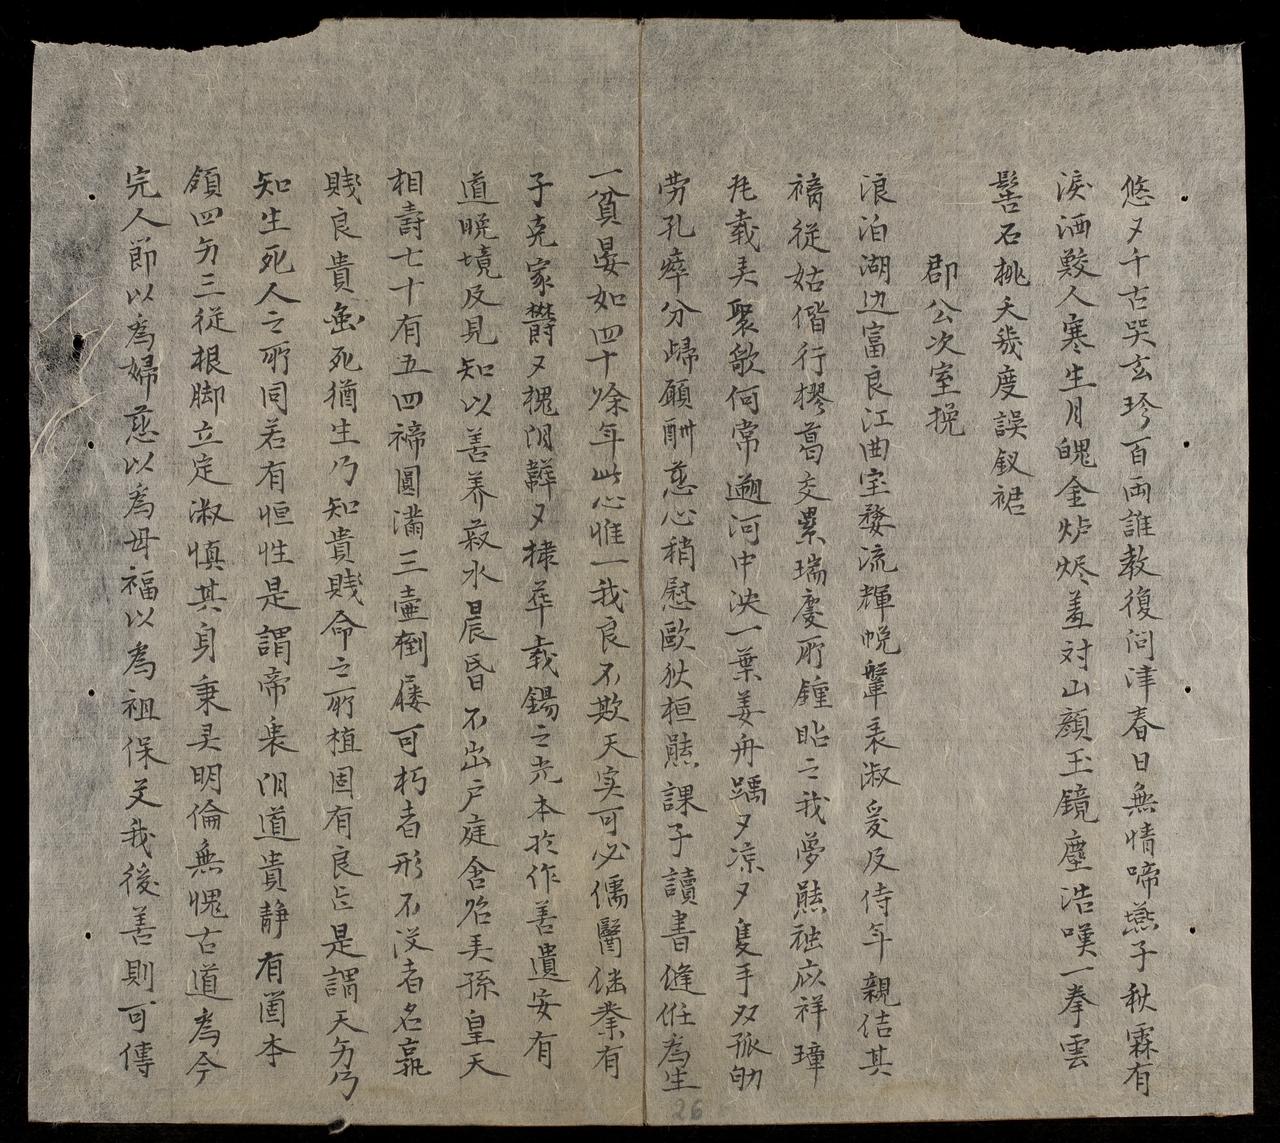 悠々千古哭玄珍百両誰教復问津春日無情啼燕子秋霖有
淚洒鮫人寒生月魄金炉烬羞対山顏玉鏡塵浩嘆一拳雲
髻石挑夭幾度誤釵裙
郡公次室挽
浪泊湖边富良江曲宝婺流輝帨鞶表淑爰及侍年親佶其
褵従姑偕行樛葛交累瑞慶所鍾眙之我夢熊祉応祥璋
瓦載美聚散何常遡河中泱一葉姜舟踽々凉々隻手双孤劬
劳孔瘁分歸願酬慈心稍慰歐荻桓熊課子讀書縫紝為生
一貧晏如四十餘年此心惟一我良不欺天寔可必儒醫继業有
子克家欝々槐阴韡々棣萼載錫之光本於作善遺安有
道晚境及見知以善养菽水晨昏不出户庭含飴美孫皇天
相壽七十有五四禘圓满三壷倒屣可朽者形不没者名孰
賎良貴虽死猶生乃知貴賎命之所植固有良㠯是謂天匀乃
知生死人之所同若有恒性是謂帝衷阴道貴静有酋本
領四匀三従根脚立定淑慎其身秉彛明倫無愧古道為今
完人節以為婦慈以為母福以為祖保艾我後善則可傳
26